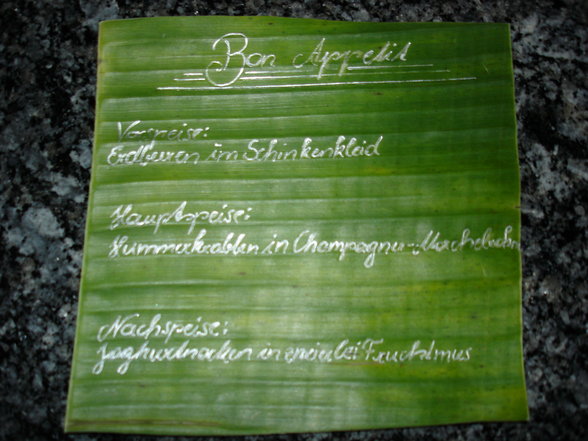 Bon Appetit
Vorspeise:
Erdbeeren im Schinkenkleid
Hauptspeise:
Hummerkrabben in Champagner-
Nachspeise:
in Fruchtmus